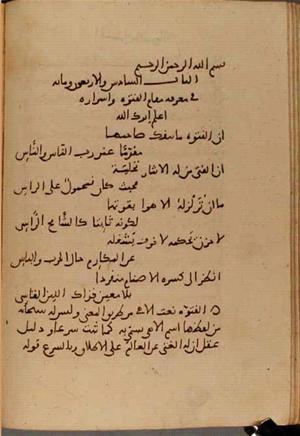 بسم الله الرحمن الرحيم
الباب السادس والاربعون ومائة
في معرفة مقام الفتوة واسراره
اعلم ايدك الله
ان الفتوة ما ينفك صاحبها
مقدما عند رب الناس والناس
ان الفتى من له الايثار تحلية
فحيث كان فمحمول على الراس
ما ان تزلزله الاهوا بقوتها
لكونه ثابتا كالشامخ الراسي
لا حزن يحكمه لا خوف يشغله
عن المكارم حال الحرب والباس
انظر الى كسره الاصنام منفردا
بلا معين فذاك اللين القاسي
الفتوة نعت الاهي من طريق المعنى وليس له سبحانه
من لفظها اسم الاهي يسمى به كما ثبت شرعا ودليل
عقل ان له الغنى عن العالم على الاطلاق وبالشرع قوله